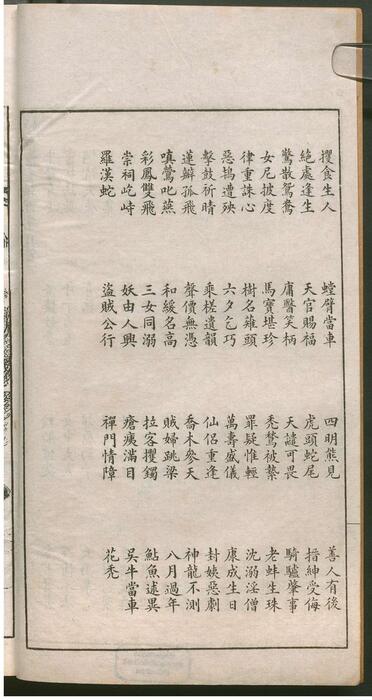 攫食生人　螳臂當車　四明熊見　善人有後
絕處逢生　天官賜福　虎頭蛇尾　搢紳受侮
驚散鴛鴦　庸醫笑柄　天譴可畏　騎驢肇事
女尼披度　馬寶堪珍　禿鶖被縶　老蚌生珠
律重誅心　樹名薙頭　罪疑惟輕　沈溺淫僧
惡鴇遭殃　六夕乞巧　萬壽盛儀　康成生日
擊鼓祈晴　乘槎遺韻　仙侶重逢　封姨惡劇
蓮瓣孤飛　聲價無憑　喬木參天　神龍不測
嗔鶯叱燕　和緩名高　賊婦跳梁　八月過年
彩鳳雙飛　三女同溺　拉客攫鐲　鮎魚述異
崇祠屹峙　妖由人興　瘡痍滿目　吳牛當車
羅漢蛇　盜賊公行　禪門情障　花禿